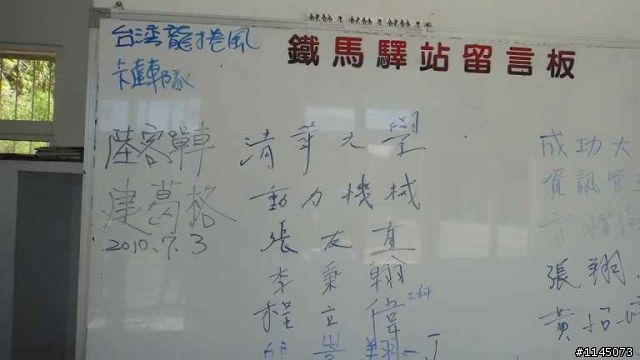 鐵馬驛站留言板
台灣龍捲風
卡車隊
陸客單車
建葛格
2010.7.3
清華大學
動力機械
張友直
李秉翰
程立偉 工科
成功大
資訊管
張翔
黃
#1145073